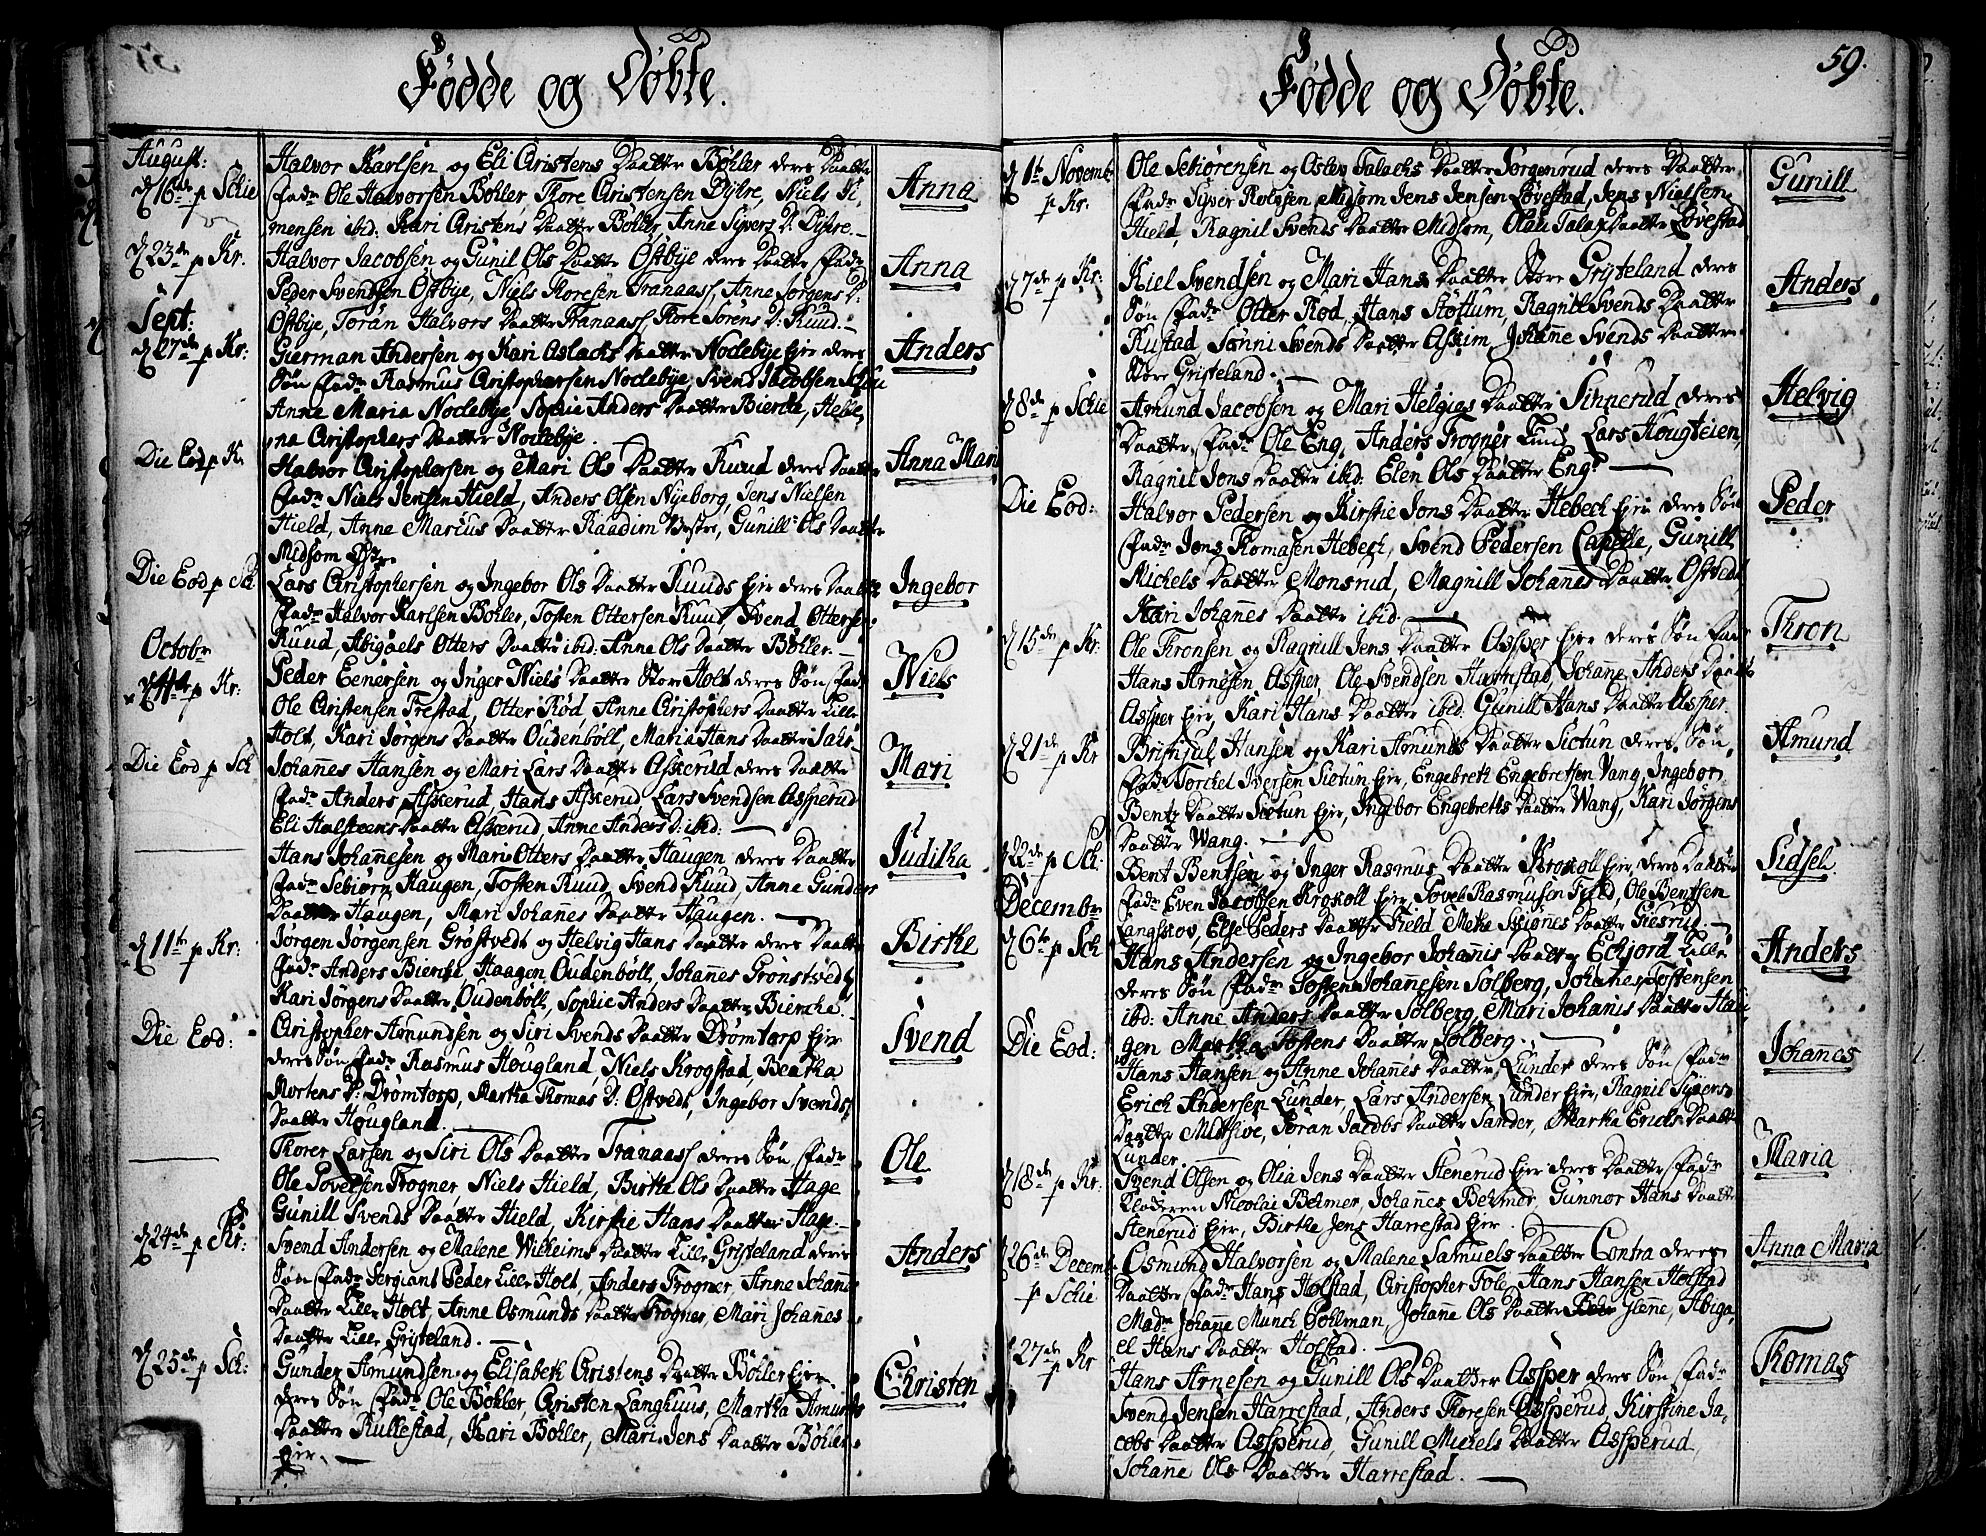 Fødde og Døbte.
August:
d 16de p Schie
Halvor Karlsen og Eli Christens Daatter Bøhler deres Daatter
Fadr Ole Halvorsen Bøhler, Thore Christensen Dysre, Niels
mensen ibid. Kari Christens Daatter Bøhler, Anne Syvers D: Dysre.
Anna
d 23de p Kr.
Halvor Jacobsen og Gunil Ols Daatter Østbye deres Daatter Fadr
Peder Svendsen Østbye, Niels Thoresen Tranaass, Anne Jørgens D:
Østbye, Toran Halvors Daatter Tranaass, Thore Sorens D: Ruud.
Anna
Sept:
d 27de p Kr:
Gierman Andersen og Kari Aslachs Daatter Noclebye Eyer deres
Søn Fadr Rasmus Christophersen Noclebye, Svend Jacobsen
Anne Maria Noclebye, Sophie Anders Daatter Bierche, Hele,
na Christophers Daatter Noclebye.
Anders
Die Eod p Kr
Halvor Christophersen og Mari Ols Daatter Ruud deres Daatter
Fadr Niels Jensen Hield, Anders Olsen Nyeborg, Jens Nielsen
Hield, Anne Marius Daatter Raadim Vestre, Gunill Ols Daatter
Midsom Østr
Anna Mari
Die Eod p Sch
Lars Christophersen og Ingebor Ols Daatter Ruuds Eyer deres Daatter
Fadr Halvor Karlsen Bøhler, Tosten Ottersen Ruud, Svend Ottersen
Ruud, Abigaels Otters Daatter ibid: Anne Ols Daatter Bøhler.
Ingebor
Octobr
d 4de p Kr:
Peder Eenersen og Inger Niels Daatter Store Holt deres Søn Fadr
Ole Christensen Frestad, Otter Rød, Anne Christophers Daatter Lille
Holt, Kari Jørgens Daatter Oudenbøll, Maria Hans Daatter
Niels
Die Eod p Sch
Johannes Hansen og Mari Lars Daatter Askerud deres Daatter
Fadr Anders Askerud, Hans Askerud, Lars Svendsen Assperud
Eli Halsteens Daatter Askerud, Anne Anders D: ibid:
Mari
Hans Johannesen og Mari Otters Daatter Haugen deres Daatter
Fadr Sebiørn Haugen, Tosten Ruud, Svend Ruud, Anne Gunders
Daatter Haugen, Mari Johannes Daatter Haugen.
Juditha
d 11te p Kr:
Jørgen Jørgensen Grøstvedt og Helvig Hans Daatter deres Daatter
Fadr Anders Bierche, Haagen Oudenbøll, Johannes Grønstvedt
Kari Jørgens Daatter Oudenbøll, Sophie Anders Daatter Bierche.
Birthe
Die Eod:
Christopher Amundsen og Siri Svends Daatter Drømtorp Eyer
deres Søn Fadr Rasmus Hougland, Niels Krogstad, Beatha
Mortens D: Drømtorp, Martha Thomas D: Østvedt, Ingebor Svends
Daatter Hougland.
Svend
Thorer Larsen og Siri Ols Daatter Tranaass deres Søn Fadr
Ole Povelsen Trogner, Niels Hield, Birthe Ols Daatter Hage
Gunill Svends Daatter Hield, Kirstie Hans Daatter Hage.
Ole
d 24de p Kr:
Svend Andersen og Malene Wilheims Daatter Lille Grysteland deres
Søn Fadr Sergiant Peder Lille Holt, Anders Trogner, Anne Johanes
Daatter Lille Holt, Anne Osmunds Daatter Trogner, Mari Johannes
Daatter Lille Grysteland.
Anders
d 25de p Sch:
Gunder Amundsen og Elisabeth Christens Daatter Bøhler Eyer
deres Søn Fadr Ole Bøhler, Christen Langhuus, Martha Amunds
Daatter Rullestad, Kari Bøhler, Mari Jens Daatter Bøhler
Eyer.
Christen
Fødde og Døbte.
59.
d 1te Novembr
p Kr.
Ole Schiørensen og Osten Talachs Daatter Jørgenrud deres Daatter
Fadr Syver Rolssen Midsom, Jens Jensen Løvestad, Jens Nielsen
Hield, Ragnil Svends Daatter Midsom, Olali Talachs Daatter Løvestad
Gunill
d 7de p Kr:
Kiel Svendsen og Mari Hans Daatter Store Grysteland deres
Søn Fadr Otter Rod, Hans Støttum, Ragnil Svends Daatter
Rustad Sønni Svends Daatter Askim, Johanne Svends Daatter
Store Grysteland.
Anders
d 8de p Schie
Amund Jacobsen og Mari Helgias Daatter Sinnerud deres
Daatter, Fadr Ole Eng, Anders Trogner Lund, Lars Hougteien,
Ragnil Jons Daatter ibid. Elen Ols Daatter Eng.
Helvig
Die Eod:
Halvor Pedersen og Kirstie Jons Daatter Hebech Eyer deres Søn
Fadr Jens Thomasen Hebech, Svend Pedersen Capelle, Gunill
Michels Daatter Monsrud, Magnill Johanes Daatter Østvedt
Kari Johannes Daatter ibid.
Peder
d 15de p Kr:
Ole Thronsen og Ragnill Jens Daatter Assper Eyer deres Søn Fadr
Hans Arnesen Assper, Ole Svendsen Harrestad, Johane Anders Daatter
Assper Eyer, Kari Hans Daatter ibid. Gunill Hans Daatter Assper.
Thron
d 21de p Kr
Brinjul Hansen og Kari Amunds Daatter Sictun deres Søn,
Fadr Torchel Iversen Sictun Eyer, Engebreth Engebretsen Vang, Ingebor
Bentz Daatter Sictun Eyer, Ingebor Engebreths Daatter Wang, Kari Jørgens
Daatter Wang.
Amund
d 22de p Sch:
Bent Bentsen og Inger Rasmus Daatter Krokoll Eyer deres Daatter
Fadr Even Jacobsen Krokoll Eyer, Povel Rasmusen Field, Ole Bentsen
Langskov, Else Peders Daatter Field Daatter Giesrud
Sidsel.
Decembr
d 6te p Sch
Hans Andersen og Ingebor Johannis Daatter Echjord Lille
deres Søn Fadr Tosten Johannesen Solberg, Johannes Tostensen
ibd: Anne Anders Daatter Solberg, Mari Johanis Daatter Hau,
gen Martha Tostens Daatter Solberg.
Anders
Die Eod:
Hans Hansen og Anne Johannes Daatter Lunder deres Søn Fadr
Erich Andersen Lunder, Lars Andersen Lunder Eyer, Ragnil Syvers
Daatter Mitsive, Toran Jacobs Daatter Sander, Martha Erichs Daatter
Lunder.
Johannes
d 18de p Kr:
Svend Olsen og Olia Jens Daatter Stenerud Eyer deres Daatter Fadr
Kloderen Nicolai Behmer, Johannes Behmer, Gunnor Hans Daatter
Stenerud Eyer, Birthe Jens Harrestad Eyer.
Maria
d 26de Decembr
p Schie
Osmund Halvorsen og Malene Samuels Daatter Contra deres
Daatter Fadr Hans Hofstad, Christopher Fole, Hans Hansen Hofstad
Madm Johane Munch Pohlman, Johanne Ols Daatter Glenne, Abiga,
el Hans Daatter Hofstad.
Anna Maria
27de
p Kr
Hans Arnesen og Gunill Ols Daatter Assper deres Søn Fadr
Svend Jensen Harrestad, Anders Thoresen Assperud, Kirstine Ja,
cobs Daatter Assperud, Gunill Michels Daatter Assperud,
Johanne Ols Daatter Harrestad.
Thomas